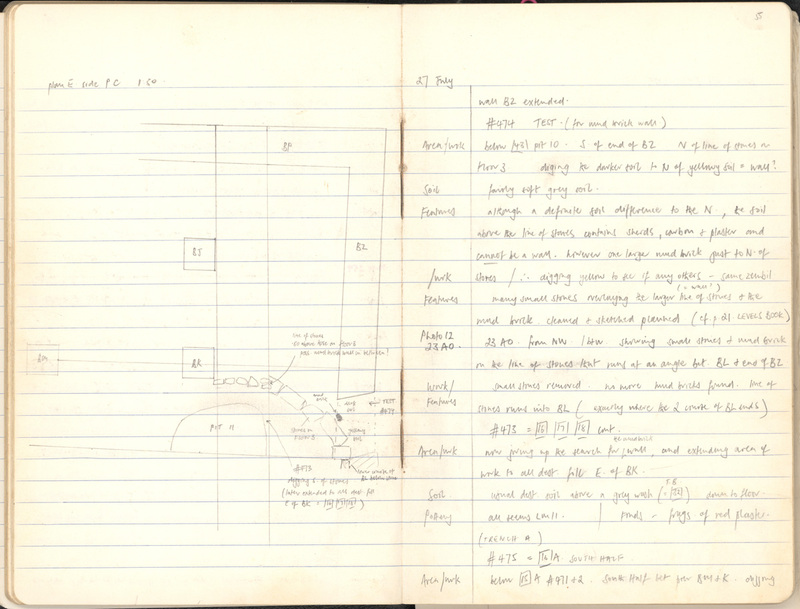 plan E side PC 1:50
BP
BZ
BJ
BK
line of stones
PIT 11
TEST
#474
#473
digging S. of stones
(later extended to all dest. fill
E of BK = |16| |17| |18|)
55
27 July
wall BZ extended.
#474 TEST. (for mud brick wall)
Area/work below |43| pit 10. S of end of BZ N of line of stones in
floor 3 digging the darker soil to N of yellowy soil = wall?
Soil fairly soft grey soil.
Features although a definite soil difference to the N, the soil
above the line of stones contains sherds, carbon + plaster and
cannot be a wall. however one larger mud brick just to N. of
/work stones / ∴ digging yellow to see if any others - same zembil
(= wall?)
Features many small stones overlaying the larger line of stones + the
mud brick cleaned + sketched planned (cf p. 21. LEVELS BOOK)
Photo 12 23 AO. from NW showing small stones + mud brick
23 AO. in the line of stones that runs at an angle bet BL + end of BZ
Work/ small stones removed. no more mud bricks found. line of
Features stones runs into BL (exactly where the 2 courses of BL ends)
#473 = |16| |17| |18| cont.
the mud brick
Area/work now giving up the search for wall and extending area of
work to all dest fill E. of BK.
Soil usual dest soil above a grey wash down to floor.
Pottery all seems LM11. | Finds - frags of red plaster.
(TRENCH A)
#475 = |16|A SOUTH HALF
Area/work below |15|A #471+2. South Half bet. digging